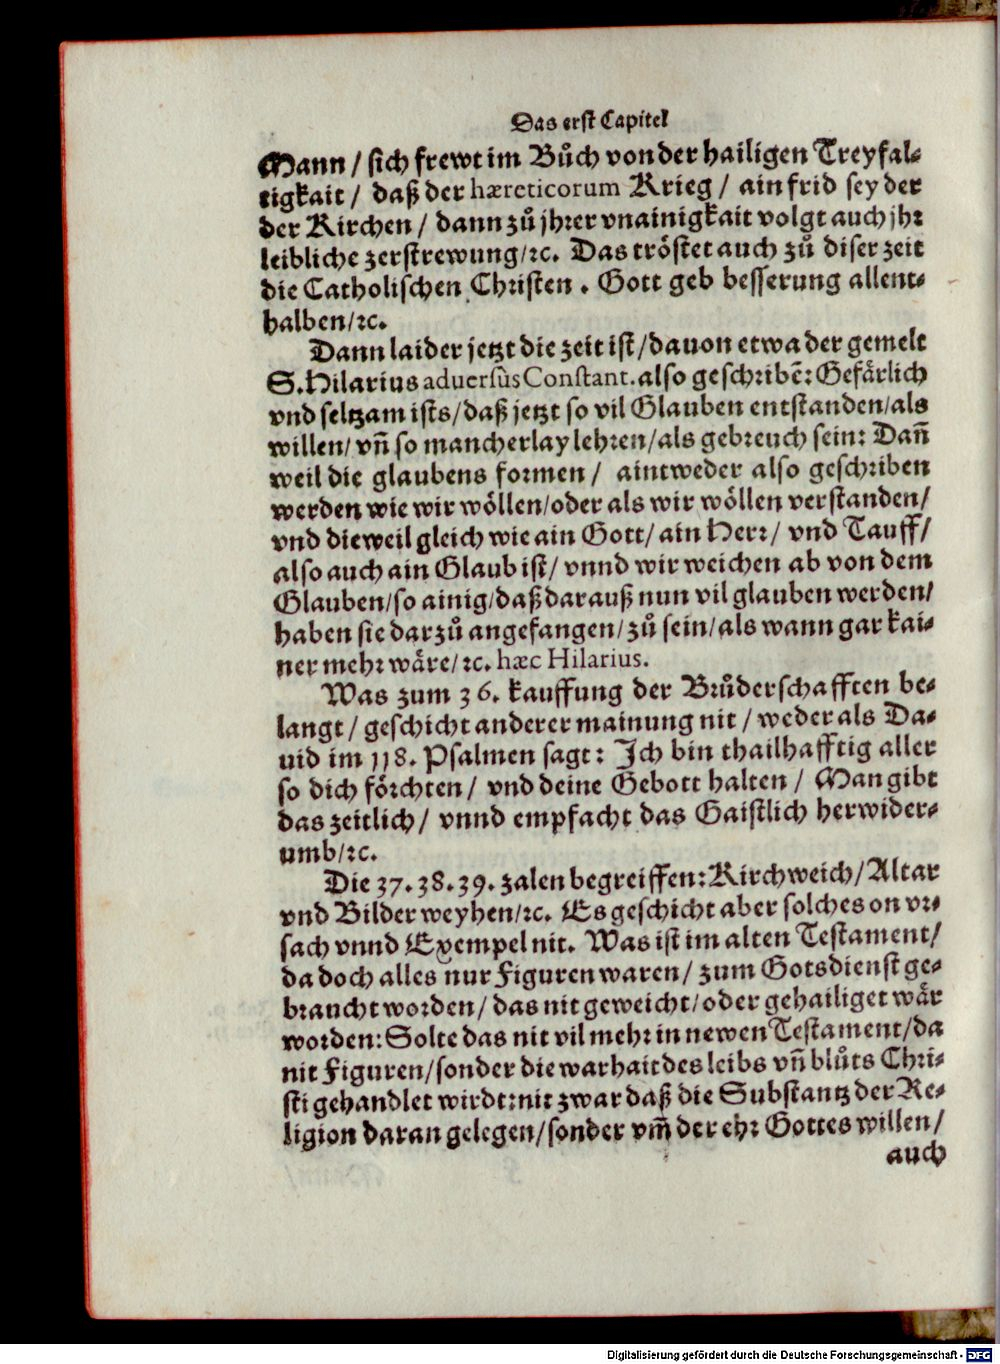 Das erst Capitel
Mann / sich frewt im Bůch von der hailigen Treyfal-
tigkait / daß der hæreticorum Krieg / ain frid sey der
der Kirchen / dann zů jhrer vnainigkait volgt auch jhr
leibliche zerstrewung/ꝛc. Das tröstet auch zů diser zeit
die Catholischen Christen . Gott geb besserung allent-
halben/ꝛc.
Dann laider jetzt die zeit ist/dauon etwa der gemelt
S. Hilarius aduersùs Constant. also geschribẽ: Gefärlich
vnd seltzam ists/daß jetzt so vil Glauben entstanden/als
willen/ vñ so mancherlay lehren/als gebreuch sein: Dañ
weil die glaubens formen / aintweder also geschriben
werden wie wir wöllen/oder als wir wöllen verstanden/
vnd dieweil gleich wie ain Gott/ ain Herr/ vnd Tauff/
also auch ain Glaub ist/ vnnd wir weichen ab von dem
Glauben/so ainig/daß darauß nun vil glauben werden/
haben sie darzů angefangen/zů sein/als wann gar kai-
ner mehr wäre/ꝛc. hæc Hilarius.
Was zum 36. kauffung der Brůderschafften be-
langt / geschicht anderer mainung nit / weder als Da-
uid im 118. Psalmen sagt: Ich bin thailhafftig aller
so dich förchten / vnd deine Gebott halten / Man gibt
das zeitlich/ vnnd empfacht das Gaistlich herwider-
umb/ꝛc.
Die 37. 38. 39. zalen begreiffen: Kirchweich/Altar
vnd Bilder weyhen/ꝛc. Es geschicht aber solches on vr-
sach vnnd Exempel nit. Was ist im alten Testament/
da doch alles nur Figuren waren/ zum Gotsdienst ge-
braucht worden/ das nit geweicht/oder gehailiget wär
worden: Solte das nit vil mehr in newen Testament/da
nit Figuren/sonder die warhait des leibs vñ blůts Chri-
sti gehandlet wirdt: nit zwar daß die Substantz der Re-
ligion daran gelegen/sonder vm̃ der ehr Gottes willen/
auch
Digitalisierung gefördert durch die Deutsche Forschungsgemeinschaft - DFG